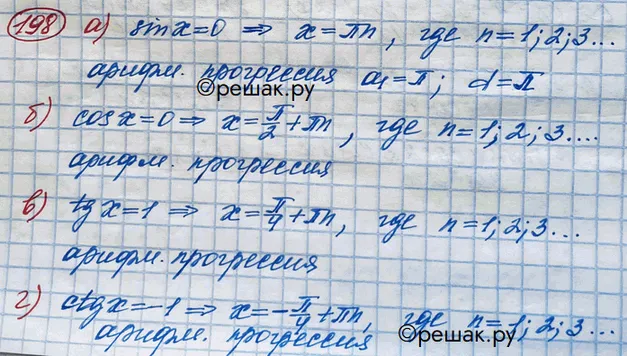 198 а) sin x = 0 ⇒ x = πn, где n = 1; 2; 3...
арифм. прогрессия a₁ = π; d = π
©решак.ру
б) cos x = 0 ⇒ x = π/2 + πn, где n = 1; 2; 3....
арифм. прогрессия
в) tg x = 1 ⇒ x = π/4 + πn, где n = 1; 2; 3...
арифм. прогрессия
г) ctg x = -1 ⇒ x = -π/4 + πn, где n = 1; 2; 3...
арифм. прогрессия ©решак.ру